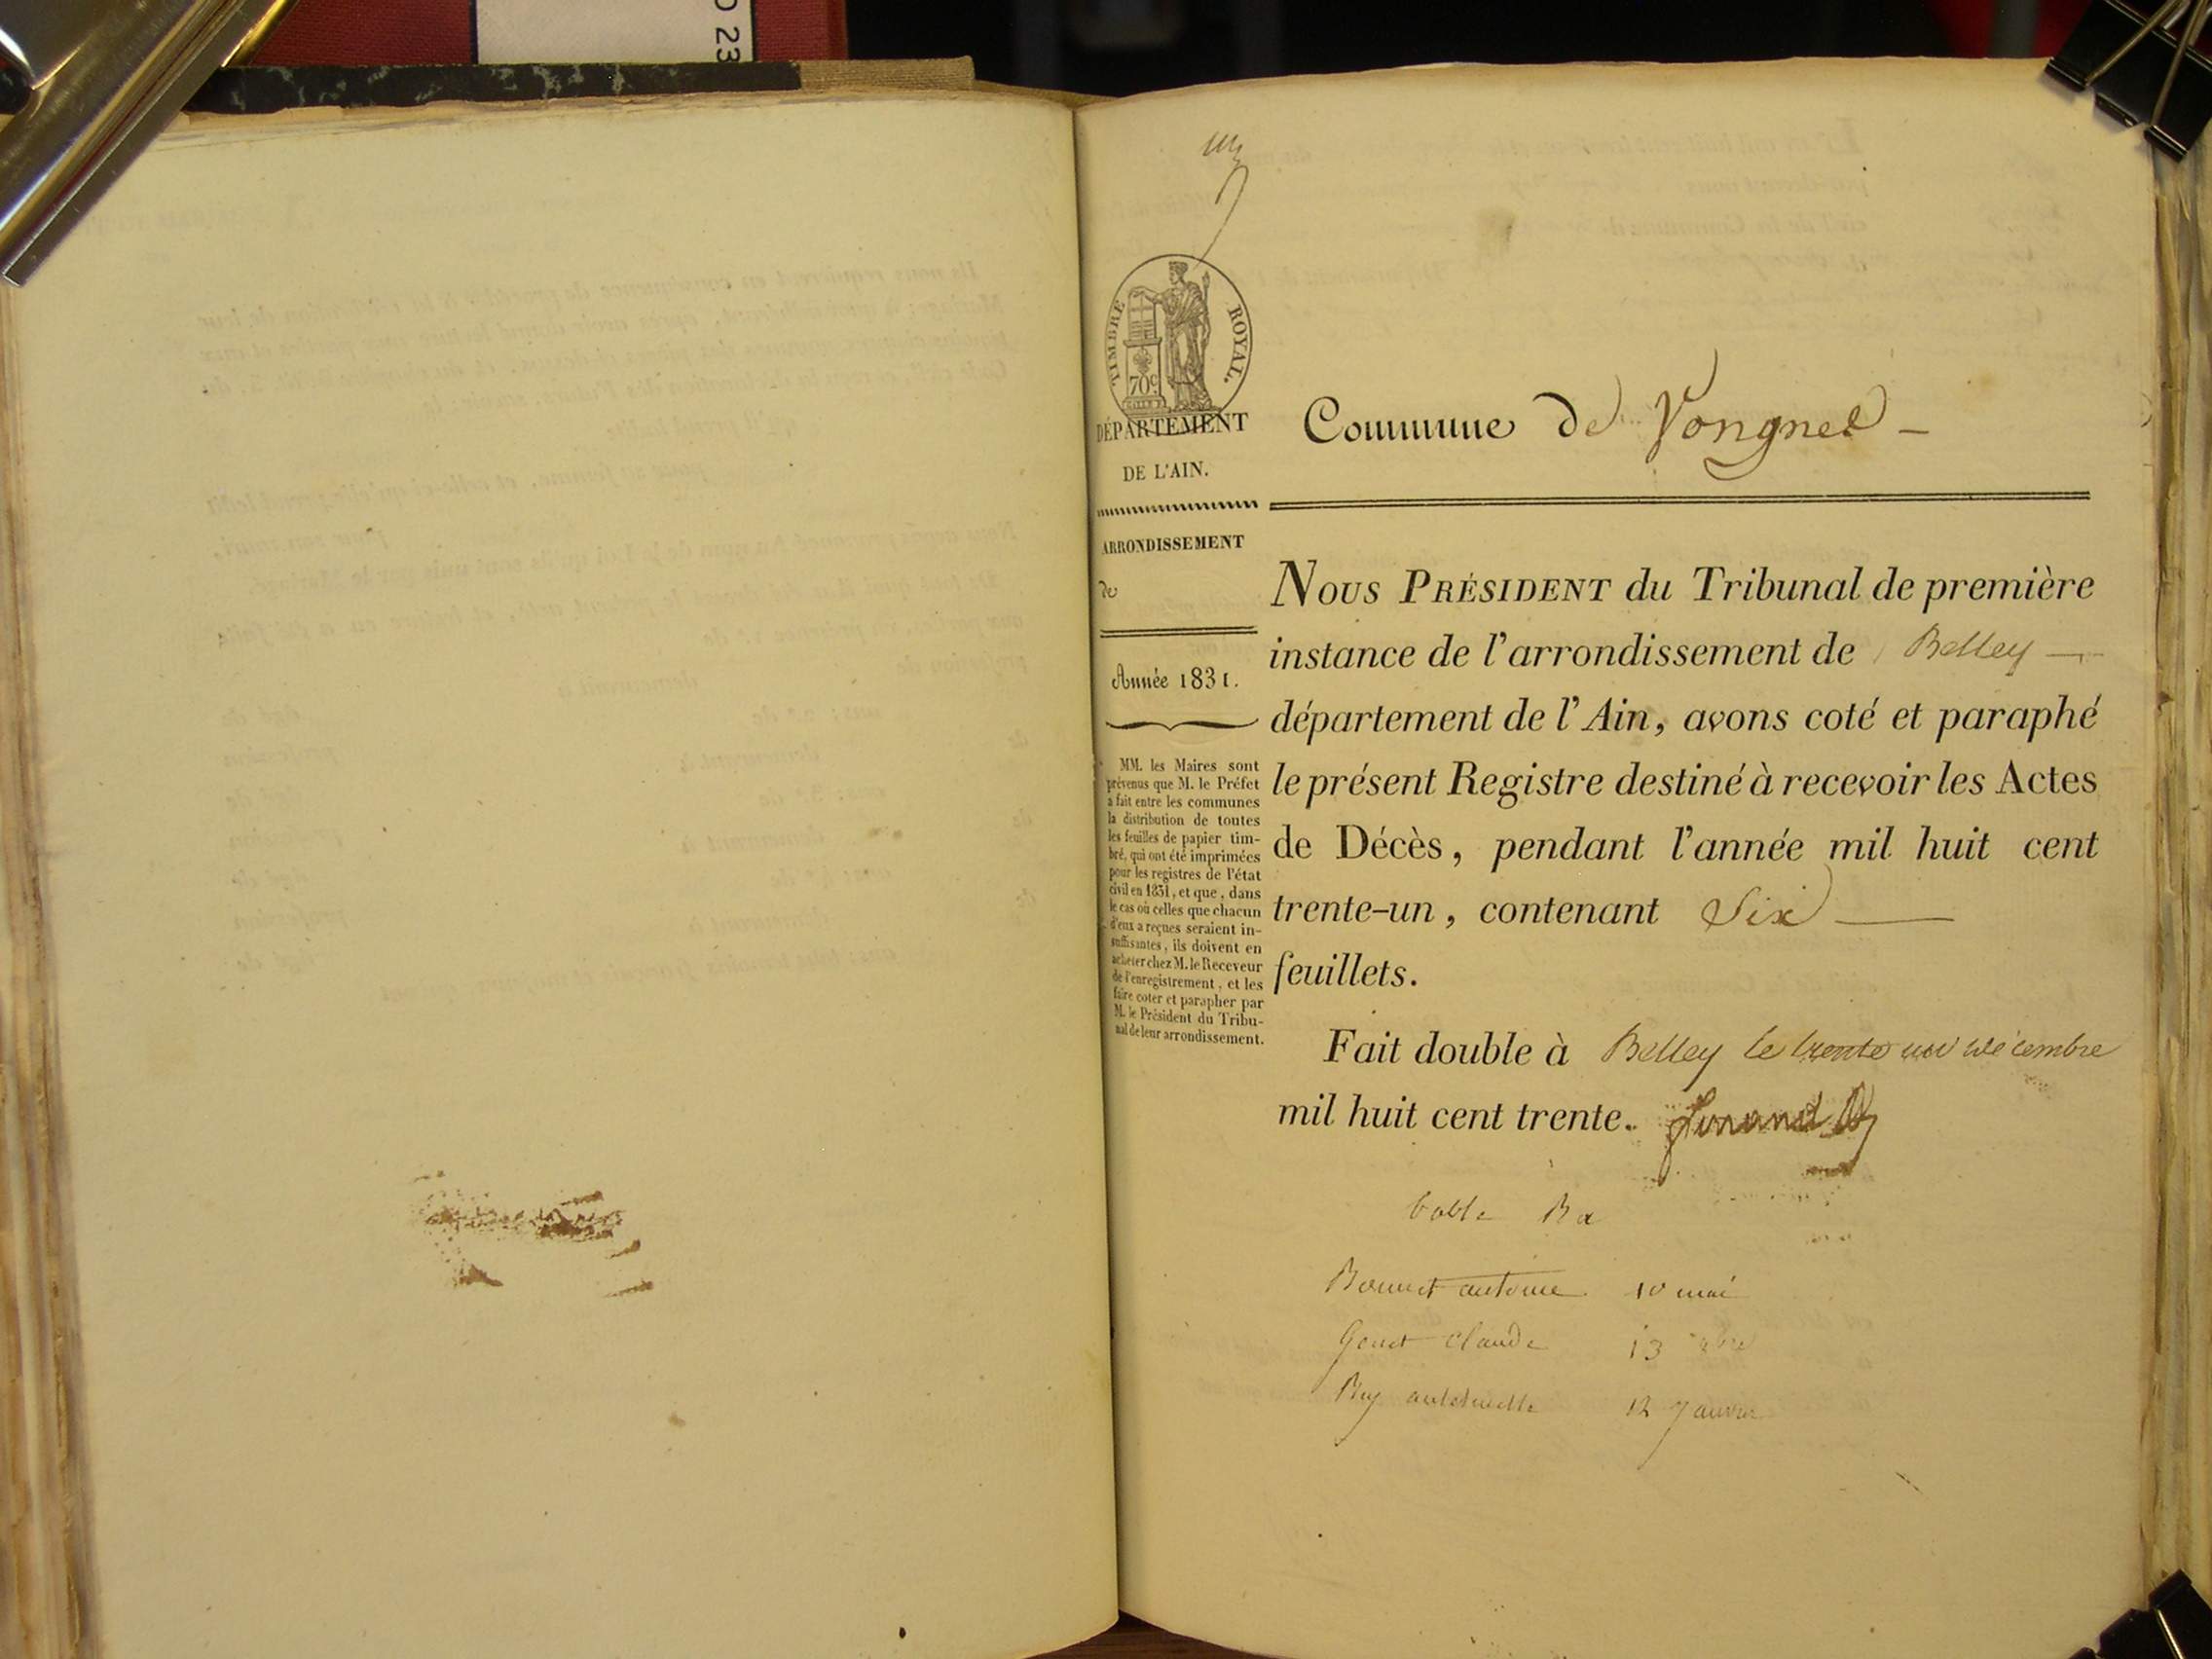 O 23
un
TIMBRE ROYAL.
70c
DÉPARTEMENT
DE L'AIN.
ARRONDISSEMENT
de
Année 1831.
MM. les Maires sont
prévenus que M. le Préfet
a fait entre les communes
la distribution de toutes
les feuilles de papier tim-
bré, qui ont été imprimées
pour les registres de l'état
civil en 1831, et que, dans
le cas où celles que chacun
d'eux a reçues seraient in-
suffisantes, ils doivent en
acheter chez M. le Receveur
de l'enregistrement, et les
faire coter et parapher par
M. le Président du Tribu-
nal de leur arrondissement.
Commune de Vongnes
NOUS PRÉSIDENT du Tribunal de première
instance de l'arrondissement de Belley
département de l'Ain, avons coté et paraphé
le présent Registre destiné à recevoir les Actes
de Décès, pendant l'année mil huit cent
trente-un, contenant Six
feuillets.
Fait double à Belley le trente un décembre
mil huit cent trente.
table
Bonnet antoine 10 mai
Genet Claude 13
Rey antoinette 12 Janvier